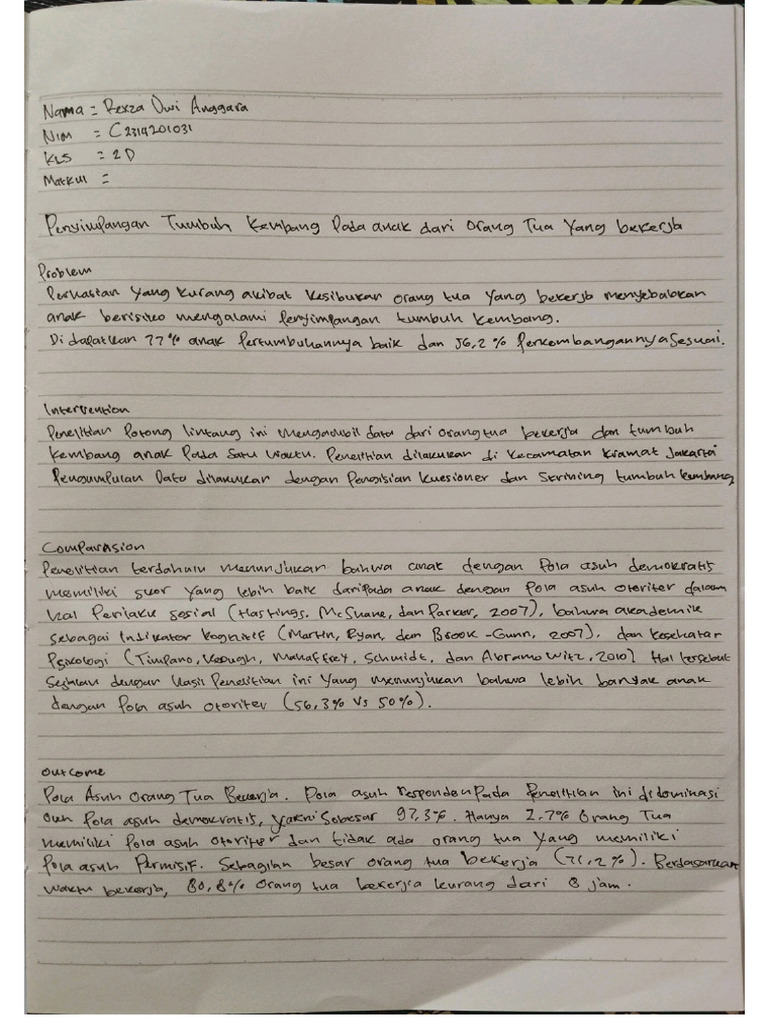 Nama = Rexza Dwi Anggara
NIM = C2314201031
KLS = 2D
Matkul =
Penyimpangan Tumbuh Kembang Pada anak dari Orang Tua Yang bekerja
Problem
Perhatian Yang kurang akibat kesibukan orang tua Yang bekerja menyebabkan
anak berisiko mengalami Penyimpangan tumbuh kembang.
Di dapatkan 77% anak Pertumbuhannya baik dan 56,2% Perkembangannya Sesuai.
Intervention
Penelitian Potong lintang ini mengambil data dari orang tua bekerja dan tumbuh
kembang anak Pada Satu Waktu. Penelitian dilakukan di Kecamatan Kramat Jakarta
Pengumpulan Data dilakukan dengan Pengisian Kuesioner dan Skrining tumbuh kembang
Comparasion
Penelitian terdahulu menunjukan bahwa anak dengan Pola asuh demokratis
memiliki skor yang lebih baik daripada anak dengan Pola asuh otoriter dalam
hal Perilaku sosial (Hastings, McShane, dan Parker, 2007), bahwa akademik
sebagai Indikator kognitif (Martin, Ryan, dan Brook-Gunn, 2007), dan kesehatan
Psikologi (Timpano, Keough, Mahaffrey, Schmidt, dan Abramowitz, 2010) Hal tersebut
Sejalan dengan hasil Penelitian ini Yang menunjukan bahwa lebih banyak anak
dengan Pola asuh otoriter (56,3% VS 50%).
Outcome
Pola Asuh Orang Tua Bekerja. Pola asuh responden Pada Penelitian ini didominasi
oleh Pola asuh demokratis, yakni Sebesar 97,3%. Hanya 2,7% Orang Tua
memiliki Pola asuh otoriter dan tidak ada orang tua Yang memiliki
Pola asuh Permisif. Sebagian besar orang tua bekerja (71,2%). Berdasarkan
waktu bekerja, 80,8% orang tua bekerja kurang dari 8 jam.